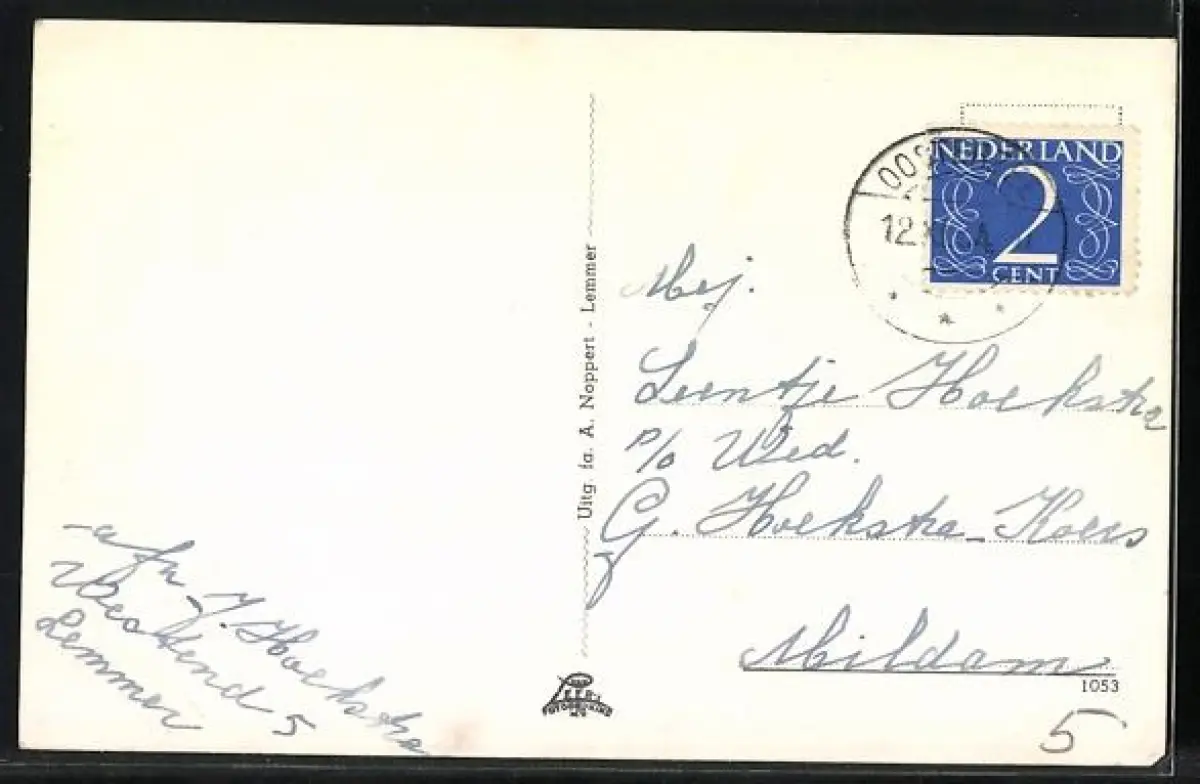 NEDERLAND
2
CENT
12
Mej.
Leentje Hoekstra
p/o Wed.
G. Hoekstra-Koers
Mildam
1053
5
Uitg. fa. A. Noppert - Lemmer
afz. J. Hoekstra
Westend 5
Lemmer